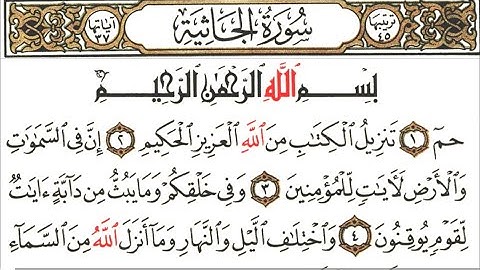 ترتيبها ٤٥ سُورَةُ الجَاثِيَةِ آياتها ٣٧
بِسْمِ ٱللَّهِ ٱلرَّحْمَٰنِ ٱلرَّحِيمِ
حمٓ ١ تَنزِيلُ ٱلْكِتَٰبِ مِنَ ٱللَّهِ ٱلْعَزِيزِ ٱلْحَكِيمِ ٢ إِنَّ فِى ٱلسَّمَٰوَٰتِ
وَٱلْأَرْضِ لَءَايَٰتٍ لِّلْمُؤْمِنِينَ ٣ وَفِى خَلْقِكُمْ وَمَا يَبُثُّ مِن دَآبَّةٍ ءَايَٰتٌ
لِّقَوْمٍ يُوقِنُونَ ٤ وَٱخْتِلَٰفِ ٱلَّيْلِ وَٱلنَّهَارِ وَمَآ أَنزَلَ ٱللَّهُ مِنَ ٱلسَّمَآءِ